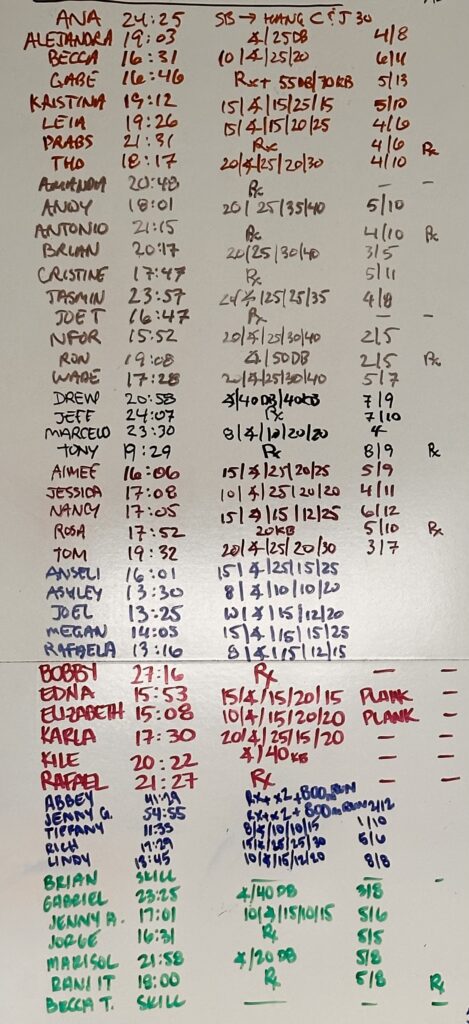 ANA 24:25 SB → HANG C & J 30
ALEJANDRA 19:03 4/25DB 4/8
BECCA 16:31 10/4/25/20 6/11
GABE 16:46 Rx+ 55DB/70KB 5/13
KRISTINA 19:12 15/4/15/25/15 5/10
LEIA 19:26 15/4/15/20/25 4/6
PRABS 21:31 Rx 4/6 Rx
THO 18:17 20/4/25/20/30 4/10
AMANDA 20:48 Rx — –
ANDY 18:01 20/25/35/40 5/10
ANTONIO 21:15 Rx 4/10 Rx
BRIAN 20:17 20/25/30/40 3/5
CRISTINE 17:47 Rx 5/11
JASMIN 23:57 4/25/25/35 4/8
JOE T 16:47 Rx – –
NFOR 15:52 20/4/25/30/40 2/5
RON 19:08 4/50DB 2/5 Rx
WADE 17:28 20/4/25/30/40 5/7
DREW 20:58 4/40DB/40KB 7/9
JEFF 24:07 Rx 7/10
MARCELO 23:30 8/4/10/20/20 4
TONY 19:29 Rx 8/9 Rx
AIMEE 16:06 15/4/25/20/25 5/9
JESSICA 17:08 10/4/25/20/20 4/11
NANCY 17:05 15/4/15/12/25 6/12
ROSA 17:52 20KB 5/10 Rx
TOM 19:32 20/4/25/20/30 3/7
ANSELI 16:01 15/4/25/15/25
ASHLEY 13:30 8/4/10/10/20
JOEL 13:25 10/4/15/12/20
MEGAN 14:05 15/4/15/15/25
RAFAELA 13:16 8/4/15/12/15
BOBBY 27:16 Rx — —
EDNA 15:53 15/4/15/20/15 PLANK –
ELIZABETH 15:08 10/4/15/20/20 PLANK –
KARLA 17:30 20/4/25/15/20 — –
KILE 20:22 4/40KB — –
RAFAEL 21:27 Rx — –
ABBEY Rx+ x2 + 800m RUN
JENNY G. 54:55 Rx+ x2 + 800m RUN 2/12
TIFFANY 11:33 8/4/10/10/15 1/10
RICH 17:29 15/4/25/25/30 5/6
LINDY 13:45 10/4/15/12/20 8/8
BRIAN SKILL — —
GABRIEL 23:25 4/40DB 3/8
JENNY A. 17:01 10/4/15/10/15 5/6
JORGE 16:31 Rx 5/5
MARISOL 21:58 4/20DB 5/8
RANI IT 18:00 Rx 5/8 Rx
BECCA T. SKILL — — —